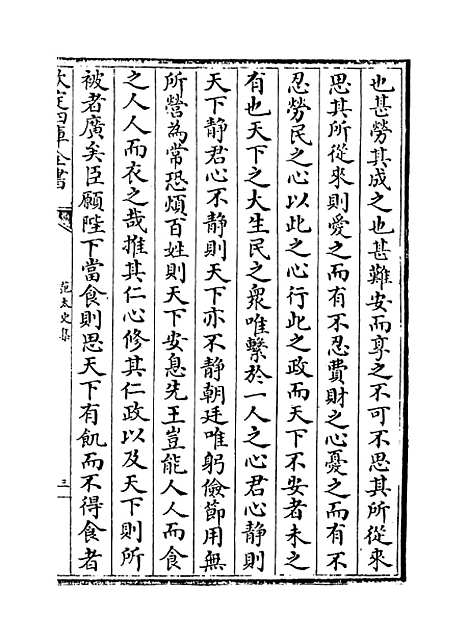 也甚勞其成之也甚難安而享之不可不思其所從來
思其所從來則愛之而有不忍費財之心憂之而有不
忍勞民之心以此之心行此之政而天下不安者未之
有也天下之大生民之衆唯繫於一人之心君心静則
天下静君心不静則天下亦不静朝廷唯躬儉節用無
所營為常恐煩百姓則天下安息先王豈能人人而食
之人人而衣之哉推其仁心修其仁政以及天下則所
被者廣矣臣願陛下當食則思天下有飢而不得食者
欽定四庫全書
范太史集
三